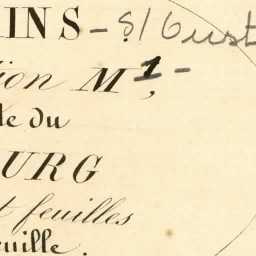 INS - S/Gust
ion M 1 -,
de du
URG
t feuilles
euille.